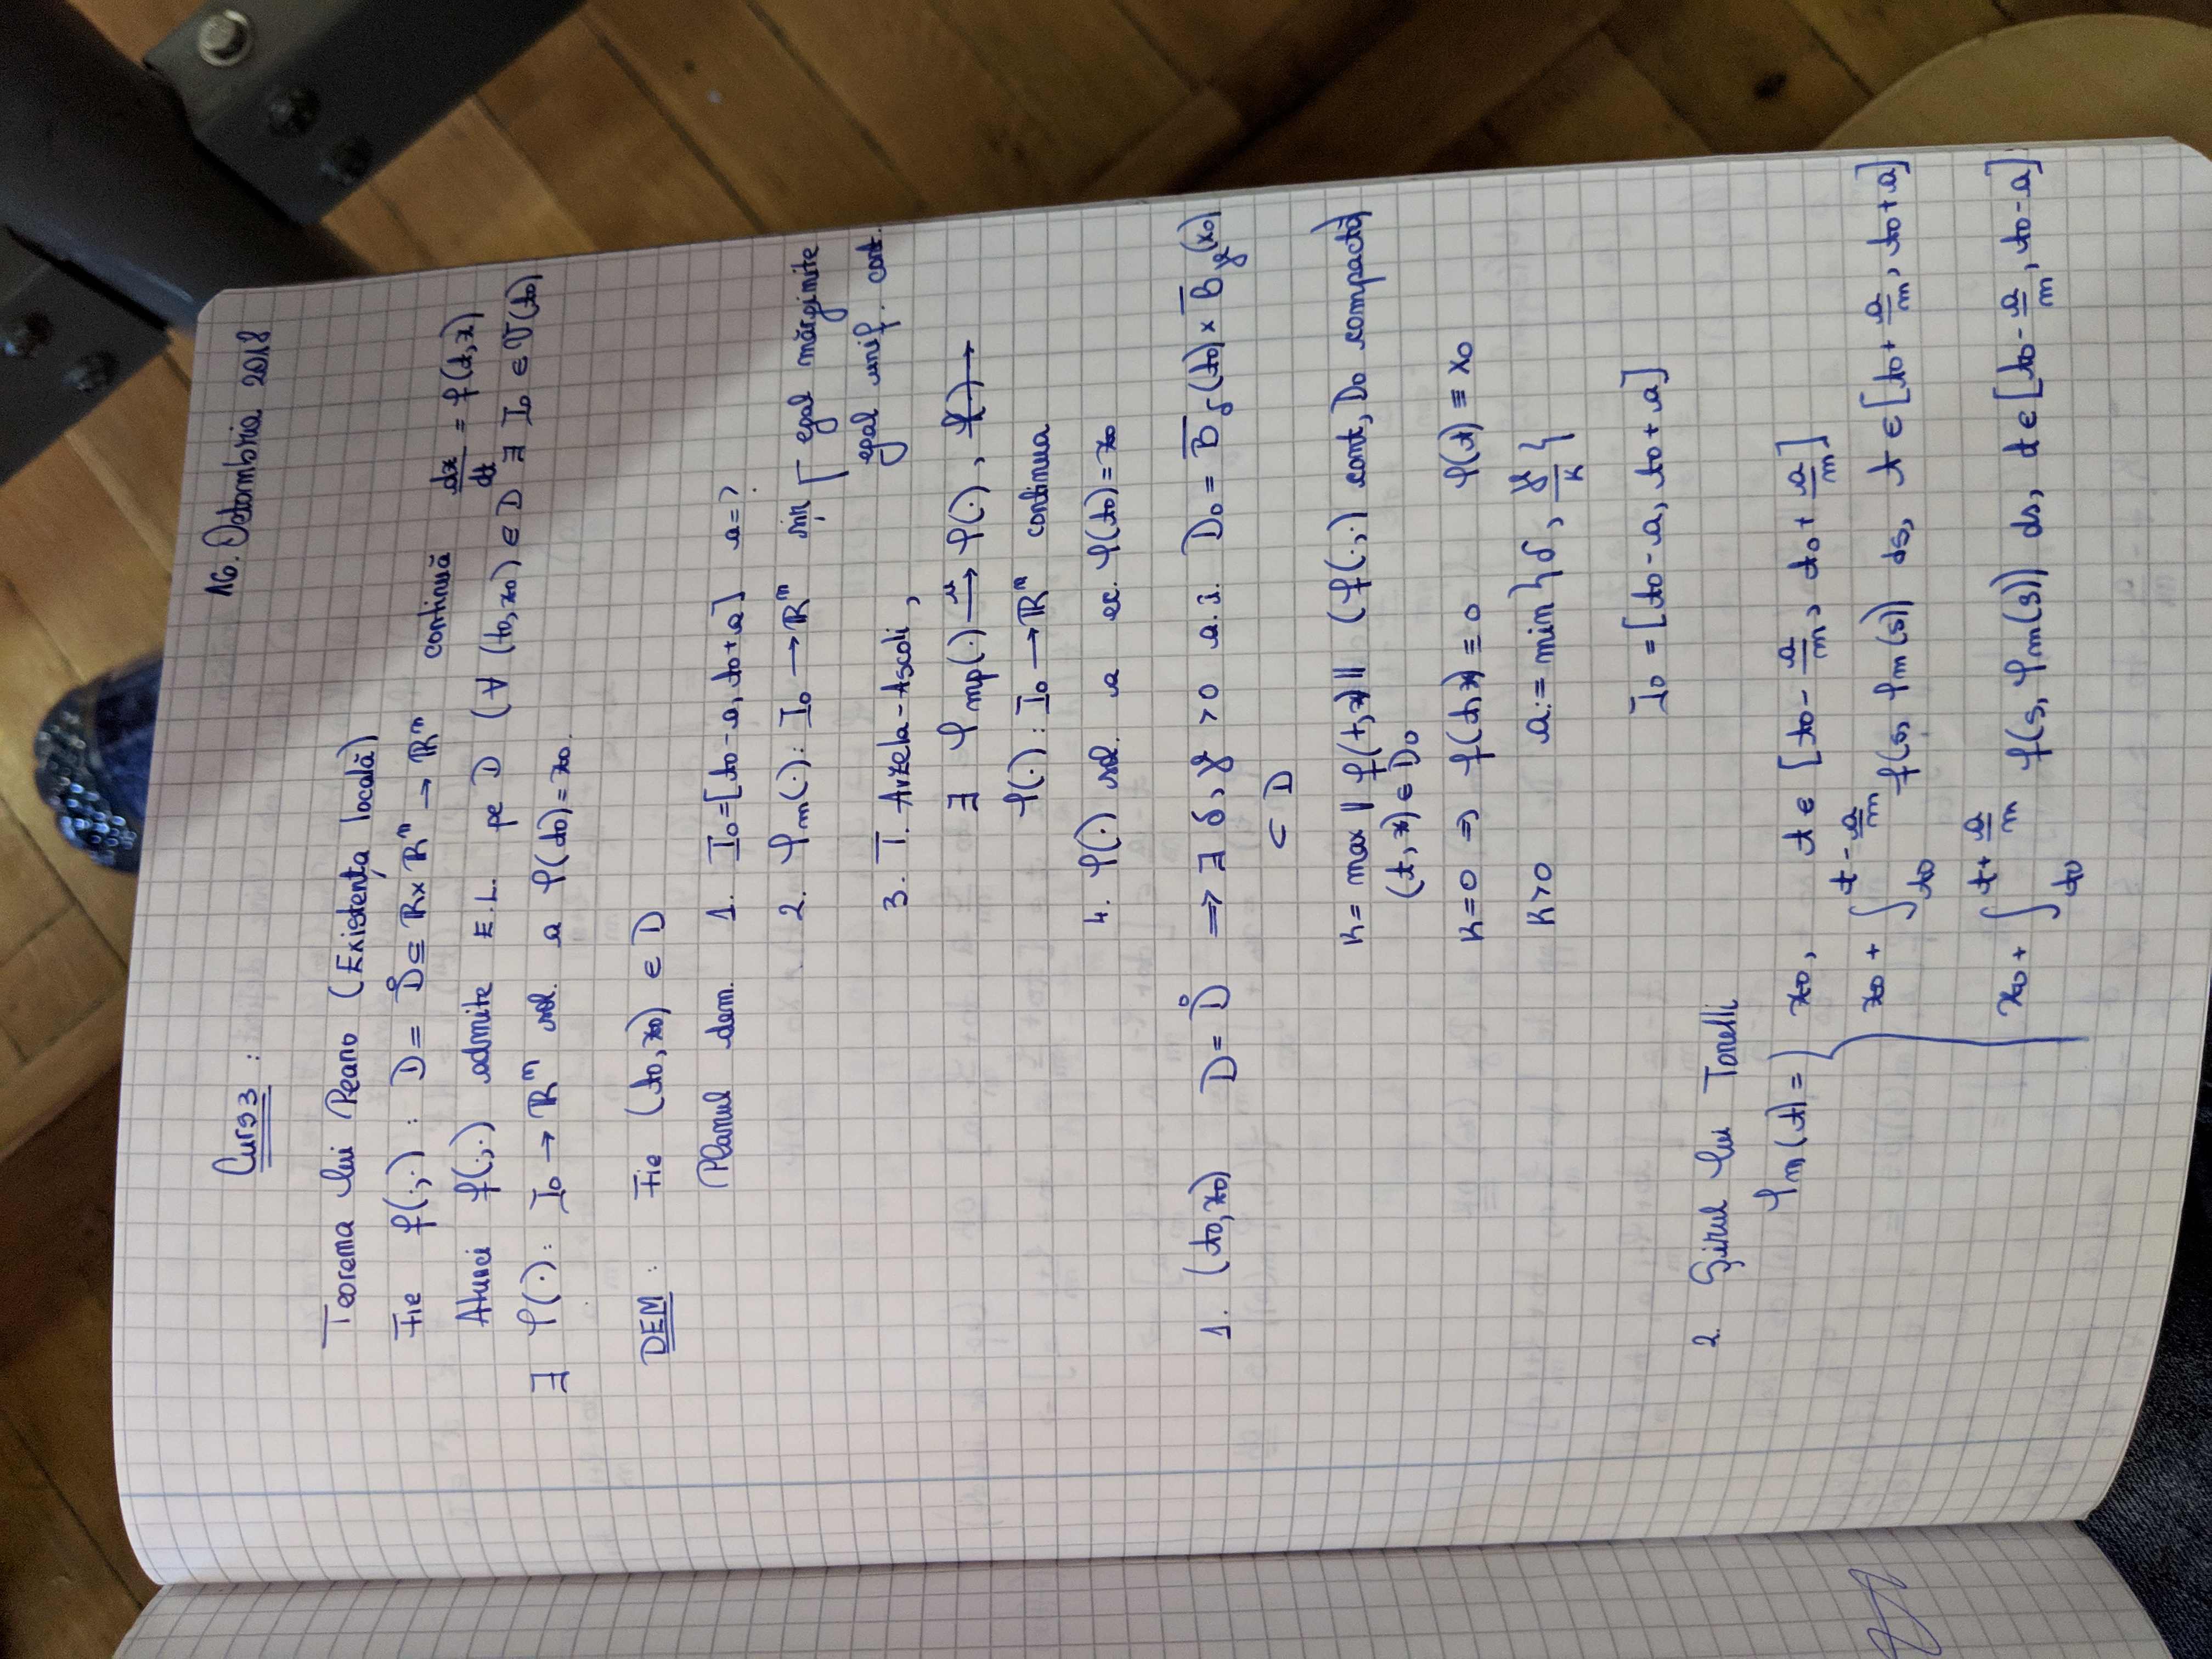 Curs 3 :
16. Octombrie 2018
Teorema lui Peano (Existența locală)
Fie f(·,·) : D = D̊ ⊆ ℝ×ℝⁿ → ℝⁿ continuă dx/dt = f(t,x)
Atunci f(·,·) admite E.L. pe D (∀ (t₀,x₀) ∈ D ∃ I₀ ∈ V(t₀)
∃ φ(·): I₀ → ℝⁿ sol. a φ(t₀) = x₀.
DEM : Fie (t₀,x₀) ∈ D
Planul dem. 1. I₀=[t₀-a, t₀+a] a=?
2. φm(·): I₀ → ℝⁿ șir egal mărginite
egal unif. cont.
3. T. Arzela-Ascoli,
∃ φmp(·) –u→ φ(·),
φ(·): I₀ → ℝⁿ continua
4. φ(·) sol. a ec. φ(t₀) = x₀
1. (t₀,x₀) D = D̊ ⇒ ∃ δ, γ > 0 a.î. D₀ = B̄δ(t₀) × B̄γ(x₀)
⊂ D
K = max || f(t,x) || (f(·,·) cont, D₀ compactă)
(t,x) ∈ D₀
K=0 ⇒ f(t,x) ≡ 0 φ(t) ≡ x₀
K>0 a := min { δ, γ/K }
I₀ = [t₀-a, t₀+a]
2. Șirul lui Tonelli
φm(t) = { x₀, t ∈ [t₀ - a/m, t₀ + a/m]
x₀ + ∫_{t₀}^{t - a/m} f(s, φm(s)) ds, t ∈ [t₀ + a/m, t₀+a]
x₀ + ∫_{t₀}^{t + a/m} f(s, φm(s)) ds, t ∈ [t₀ - a/m, t₀-a]